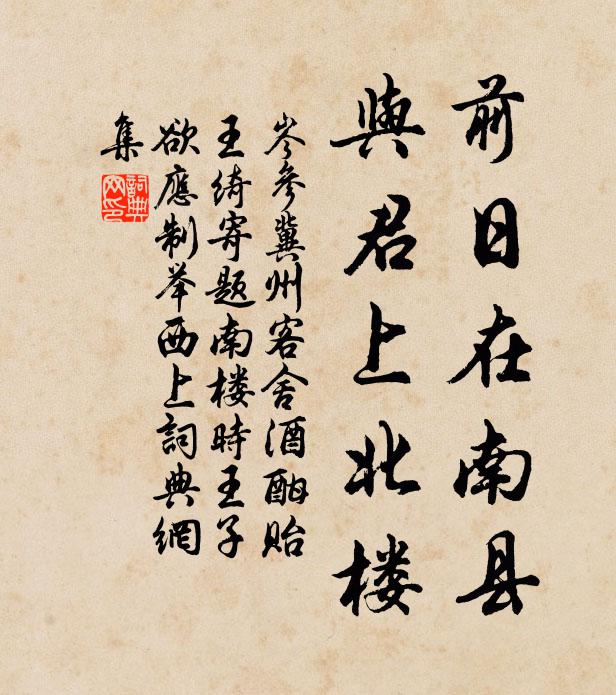 前日在南县
與君上北楼
岑參冀州客舍酒酣貽
王绮寄题南楼時王子
欲應制举西上詞典網
集
詞典网印